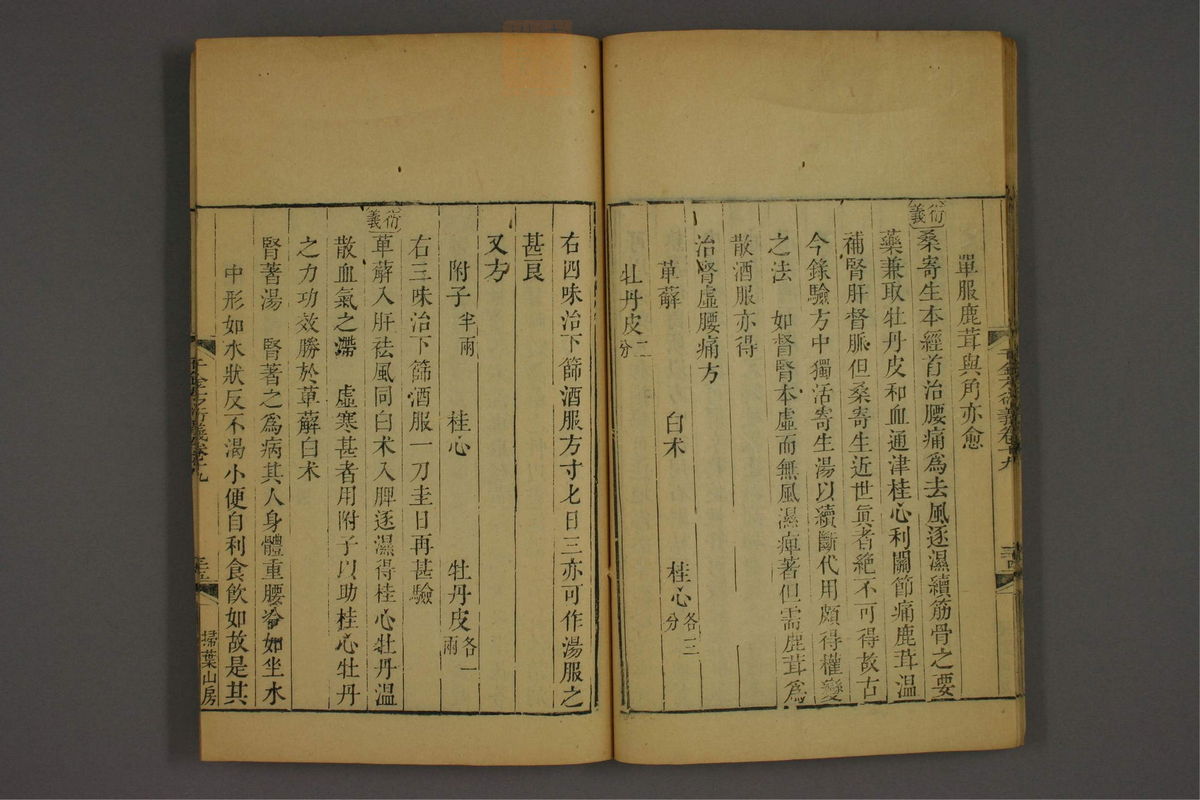 單服鹿茸與角亦愈
衍義
桑寄生本經首治腰痛爲去風逐濕續筋骨之要
藥兼取牡丹皮和血通津桂心利關節痛鹿茸温
補腎肝督脈但桑寄生近世眞者絶不可得故古
今錄驗方中獨活寄生湯以續斷代用頗得權變
之法　如督腎本虛而無風濕痺著但需鹿茸爲
散酒服亦得
治腎虛腰痛方
萆薢　白术　桂心各三分
牡丹皮二分
千金方衍義卷十九
三十四
右四味治下篩酒服方寸匕日三亦可作湯服之
甚良
又方
附子半兩　桂心　牡丹皮各一兩
右三味治下篩酒服一刀圭日再甚驗
衍義
萆薢入肝祛風同白术入脾逐濕得桂心牡丹温
散血氣之滯　虛寒甚者用附子以助桂心牡丹
之力功效勝於萆薢白术
腎著湯　腎著之爲病其人身體重腰冷如坐水
中形如水狀反不渴小便自利食飲如故是其
千金方衍義卷十九
三十五
掃葉山房